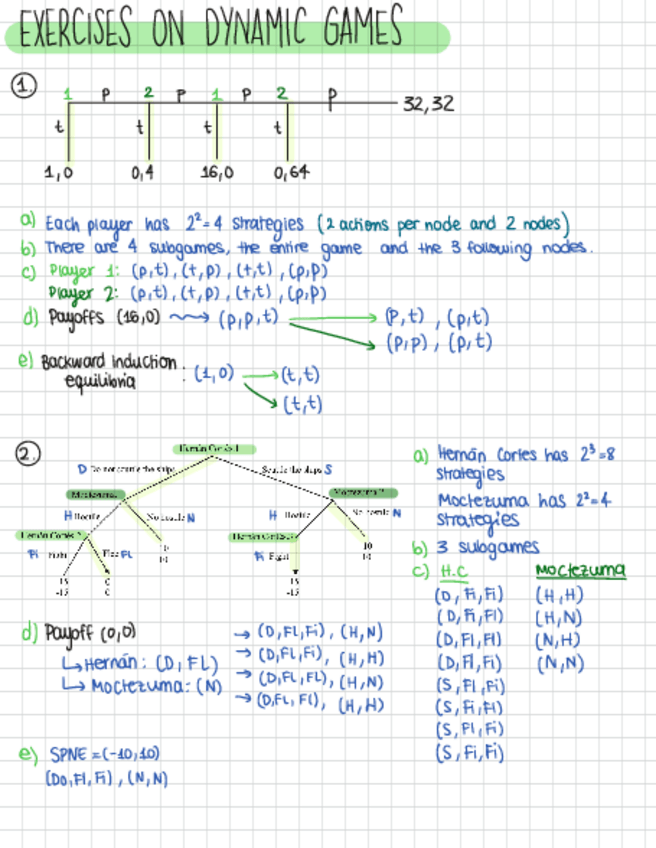 EXERCISES ON DYNAMIC GAMES
1.
1 P 2 P 1 P 2 P 32,32
t t t t
1,0 0,4 16,0 0,64
a) Each player has 2²=4 strategies (2 actions per node and 2 nodes)
b) There are 4 subgames, the entire game and the 3 following nodes.
c) Player 1: (p,t), (t,p), (t,t), (p,p)
Player 2: (p,t), (t,p), (t,t), (p,p)
d) Payoffs (16,0) → (p,p,t) → (P,t), (p,t)
(p,p), (p,t)
e) Backward induction equilibria : (1,0) → (t,t)
(t,t)
2.
Hernán Cortés 1
D Do not scuttle the ships Scuttle the ships S
Moctezuma Moctezuma 2
H Hostile No hostile N H Hostile No hostile N
Hernán Cortés 2 Hernán Cortés 3
Fi Fight Flee FL Fi Fight
10 10
-15 0
-15 0
a) Hernán Cortes has 2³=8
strategies
Moctezuma has 2²=4
strategies
b) 3 subgames
c) H.C Moctezuma
(D, Fi, Fi) (H,H)
(D, Fi, Fl) (H,N)
(D, Fl, Fl) (N,H)
(D, Fl, Fi) (N,N)
(S, Fl, Fi)
(S, Fi, Fl)
(S, Fl, Fi)
(S, Fi, Fi)
d) Payoff (0,0)
↳ Hernán: (D, FL)
↳ Moctezuma: (N)
→ (D, FL, Fi), (H,N)
→ (D, FL, Fi), (H,H)
→ (D, FL, FL), (H,N)
→ (D, FL, FL), (H,H)
e) SPNE = (-10,10)
(Do, Fl, Fi), (N,N)